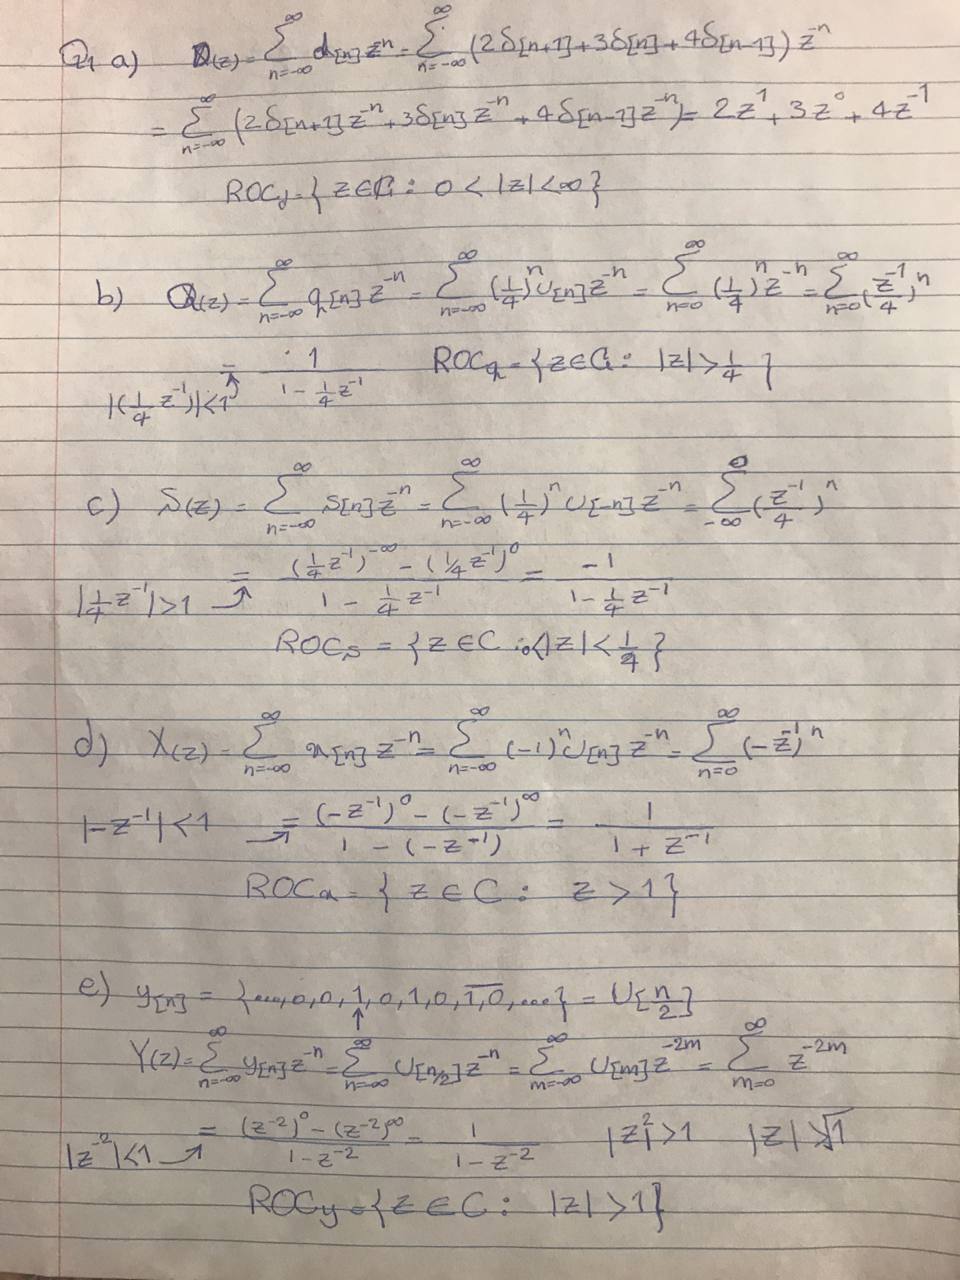 Q1 a) D(z) = Σ_{n=-∞}^{∞} d[n] z^{-n} = Σ_{n=-∞}^{∞} (2δ[n+1] + 3δ[n] + 4δ[n-1]) z^{-n}
= Σ_{n=-∞}^{∞} (2δ[n+1] z^{-n} + 3δ[n] z^{-n} + 4δ[n-1] z^{-n}) = 2z^1 + 3z^0 + 4z^{-1}
ROC_d = { z ∈ C : 0 < |z| < ∞ }
b) Q(z) = Σ_{n=-∞}^{∞} q[n] z^{-n} = Σ_{n=-∞}^{∞} (1/4)^n U[n] z^{-n} = Σ_{n=0}^{∞} (1/4)^n z^{-n} = Σ_{n=0}^{∞} (z^{-1}/4)^n
|(1/4 z^{-1})| < 1 = 1/(1 - 1/4 z^{-1}) ROC_q = { z ∈ C : |z| > 1/4 }
c) S(z) = Σ_{n=-∞}^{∞} S[n] z^{-n} = Σ_{n=-∞}^{∞} (1/4)^n U[-n] z^{-n} = Σ_{-∞}^{0} (z^{-1}/4)^n
|1/4 z^{-1}| > 1 = ((1/4 z^{-1})^{-∞} - (1/4 z^{-1})^0)/(1 - 1/4 z^{-1}) = -1/(1 - 1/4 z^{-1})
ROC_s = { z ∈ C : 0 < |z| < 1/4 }
d) X(z) = Σ_{n=-∞}^{∞} x[n] z^{-n} = Σ_{n=-∞}^{∞} (-1)^n U[n] z^{-n} = Σ_{n=0}^{∞} (-z^{-1})^n
|-z^{-1}| < 1 = ((-z^{-1})^0 - (-z^{-1})^∞)/(1 - (-z^{-1})) = 1/(1 + z^{-1})
ROC_x = { z ∈ C : z > 1 }
e) y[n] = { ..., 0, 0, 1, 0, 1, 0, \overline{1, 0}, ... } = U[n/2]
↑
Y(z) = Σ_{n=-∞}^{∞} y[n] z^{-n} = Σ_{n=-∞}^{∞} U[n/2] z^{-n} = Σ_{m=-∞}^{∞} U[m] z^{-2m} = Σ_{m=0}^{∞} z^{-2m}
|z^{-2}| < 1 = ((z^{-2})^0 - (z^{-2})^∞)/(1 - z^{-2}) = 1/(1 - z^{-2}) |z^2| > 1 |z| > √1
ROC_y = { z ∈ C : |z| > 1 }